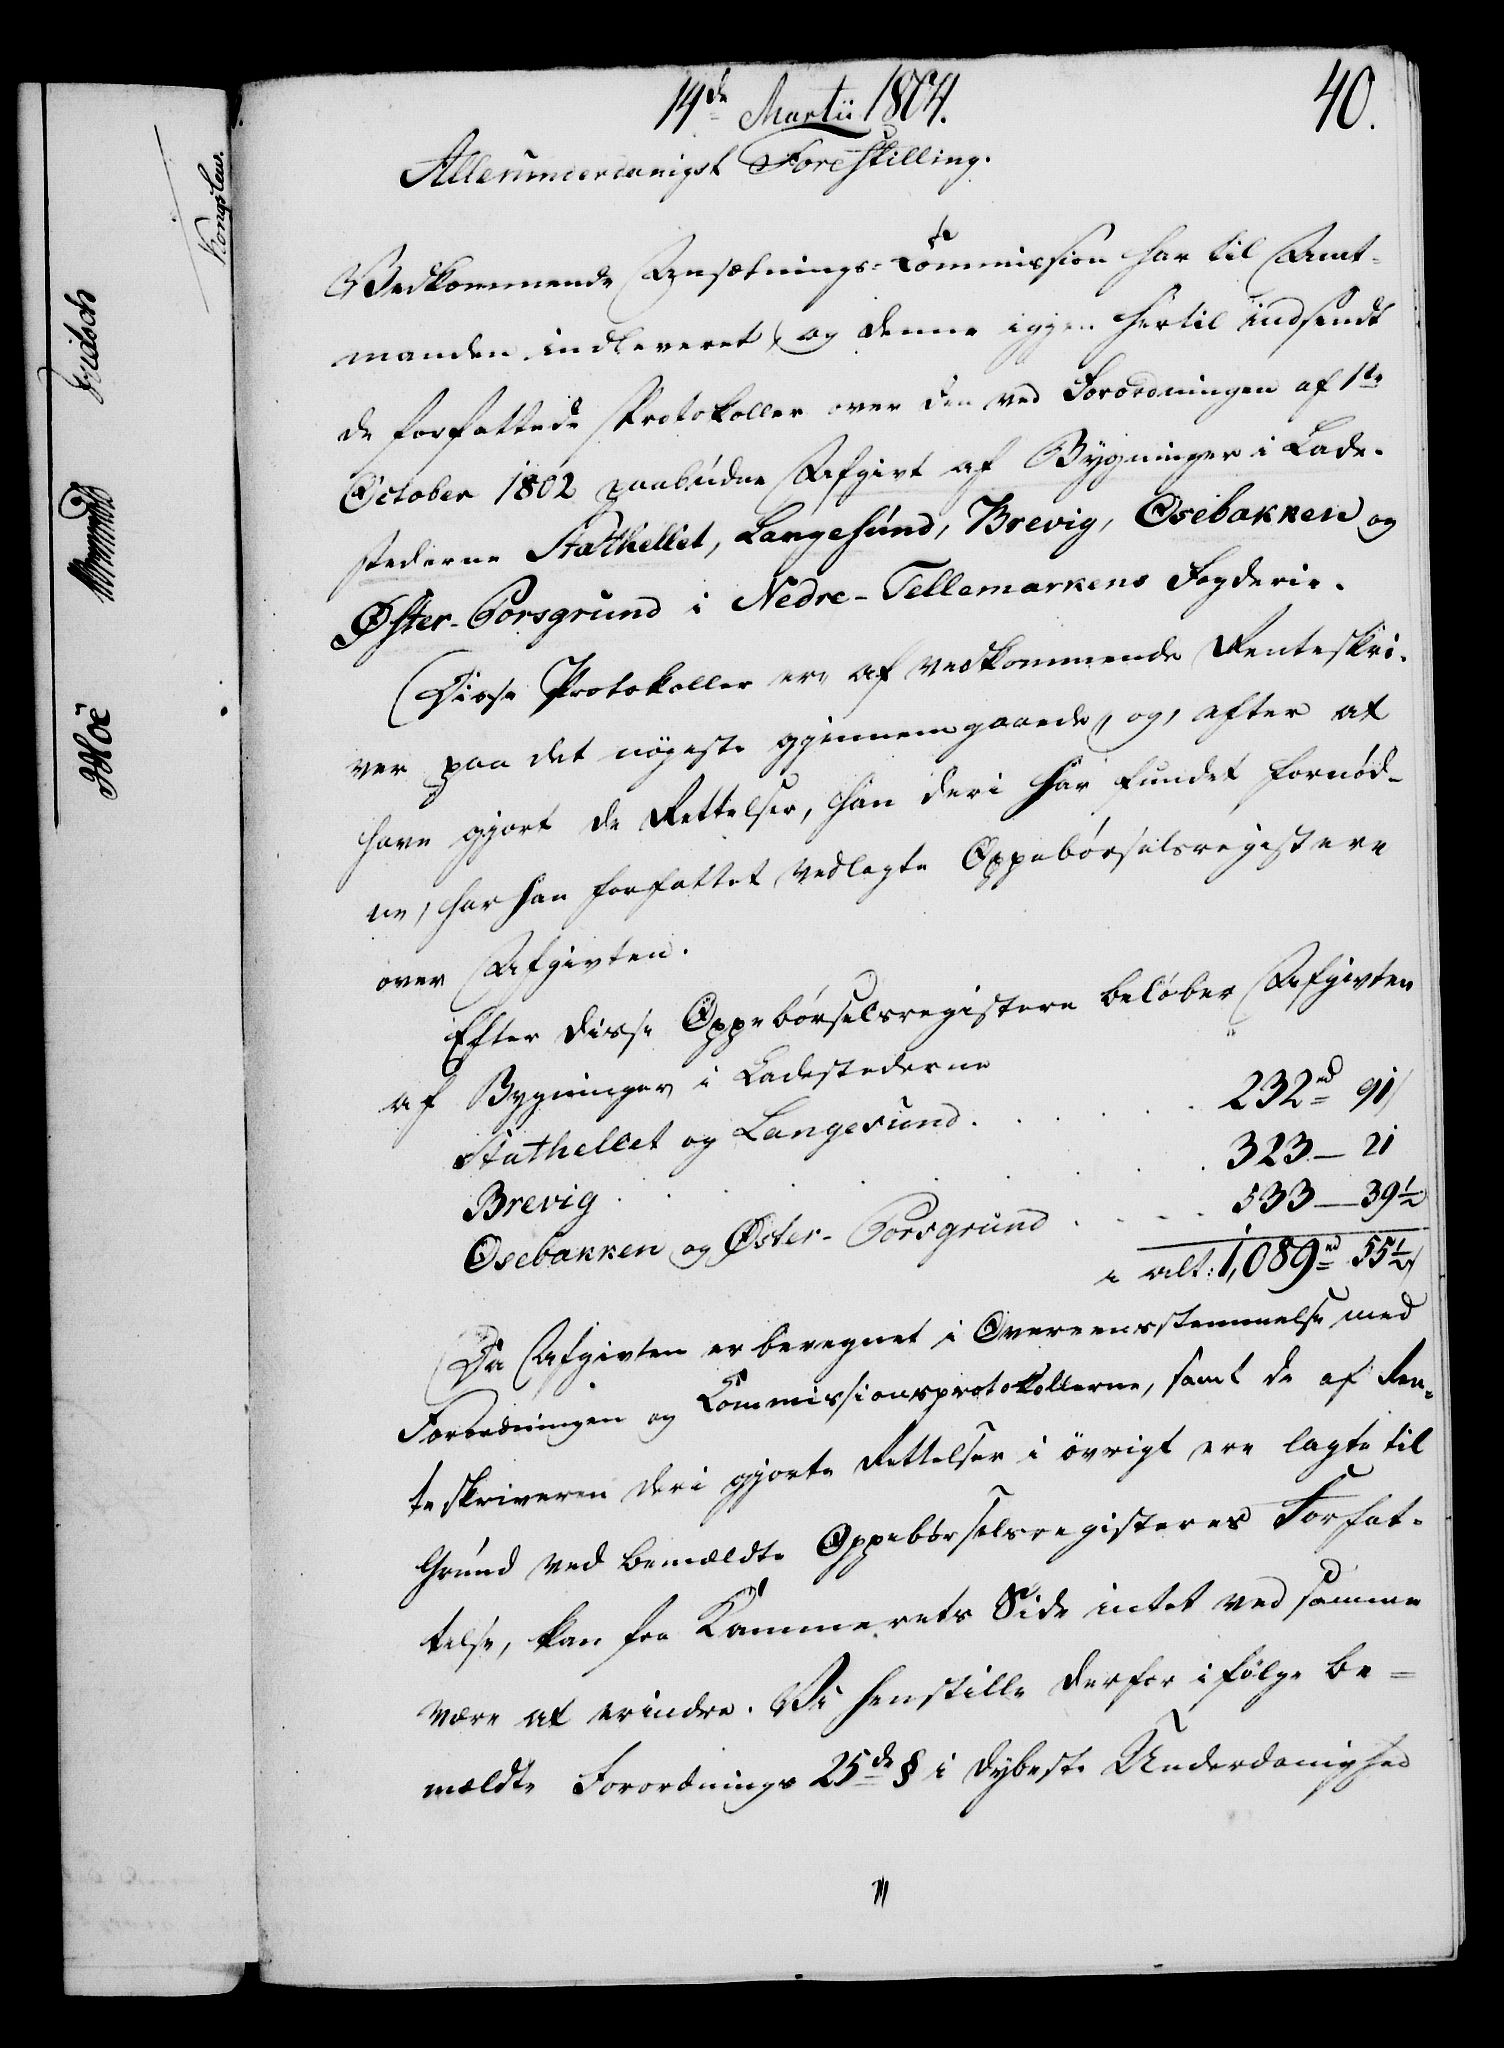 14de Martii 1804.
40.
Allerunderdanigst Forestilling.
Vedkommende Ansætnings-Commission har til Amt-
manden indleveret, og denne igjen hertil indsendt
de forfattede Protokoller over den ved Forordningen af 1ste
October 1802 paabudne Afgivt af Bygninger i Lade-
stederne Stathellet, Langesund, Brevig, Osebakken og
Øster-Porsgrund i Nedre-Tellemarkens Fogderie.
Disse Protokoller ere af vedkommende Renteskri-
ver paa det nøieste gjennemgaaede, og, efter at
have gjort de Rettelser, han deri har fundet fornød-
ne, har han forfattet vedlagte Oppebørselsregistere
over Afgivten.
Efter disse Oppebørselsregistere beløber Afgivten
af Bygninger i Ladestederne
Stathellet og Langesund . . . . . 232rd 91
Brevig . . . . . . . 323 — 21
Osebakken og Øster-Porsgrund . . . . 533 — 39½
i alt: 1,089rd 55½
Da Afgivten er beregnet i Overeensstemmelse med
Forordningen og Commissionsprotokollerne, samt de af Ren-
teskriveren deri gjorte Rettelser i øvrigt ere lagte til
Grund ved bemældte Oppebørselsregisteres Forfat-
telse, kan fra Kammerets Side intet ved samme
være at erindre. Vi henstille derfor ifølge be-
mældte Forordnings 25de § i dybeste Underdanighed
Kongslew.
Fritsch
Moe